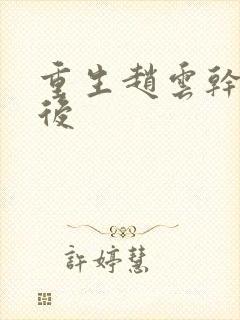 重生趙雲幹
後
許婷慧